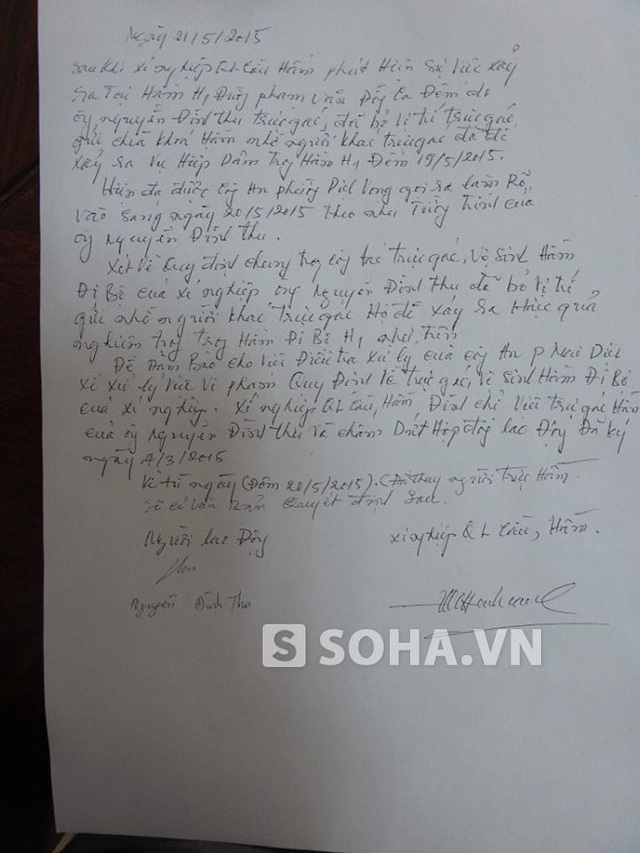 Ngày 21/5/2015
Sau khi xí nghiệp QL Cầu Hầm phát hiện sự việc xảy
ra tại Hầm H1 Đường Phạm Văn Đồng ca Đêm do
ông Nguyễn Đình Thu trực gác, đã bỏ vị trí trực gác
gửi chìa khoá Hầm nhờ người khác trực gác đã để
xảy ra vụ Hiếp Dâm trong Hầm H1 Đêm 19/5/2015.
Hiện đã được công An phường Dịch Vọng gọi ra làm Rõ,
vào sáng ngày 20/5/2015 theo như trường trình của
ông Nguyễn Đình Thu.
Xét về quy định chung trong công tác trực gác, Vệ Sinh Hầm
Đi Bộ của xí nghiệp ông Nguyễn Đình Thu đã bỏ vị trí
gửi nhờ người khác trực gác Hộ để xảy ra Hậu quả
nghiêm trọng trong Hầm Đi Bộ H1 như trên
Để Đảm Bảo cho việc Điều tra xử lý của công An P Mai Dịch
xét xử lý việc vi phạm Quy Định về trực gác, vệ sinh Hầm Đi Bộ
của xí nghiệp. Xí nghiệp QL Cầu, Hầm Đình chỉ việc trực gác Hầm
của ông Nguyễn Đình Thu và chấm Dứt Hợp đồng lao Động Đã ký
ngày 4/3/2015
Về từ ngày (Đêm 20/5/2015). (Đã thay người trực Hầm.
Sẽ có văn bản Quyết định Sau.
Người lao Động xí nghiệp QL Cầu, Hầm.
Nguyễn Đình Thu
S SOHA.VN